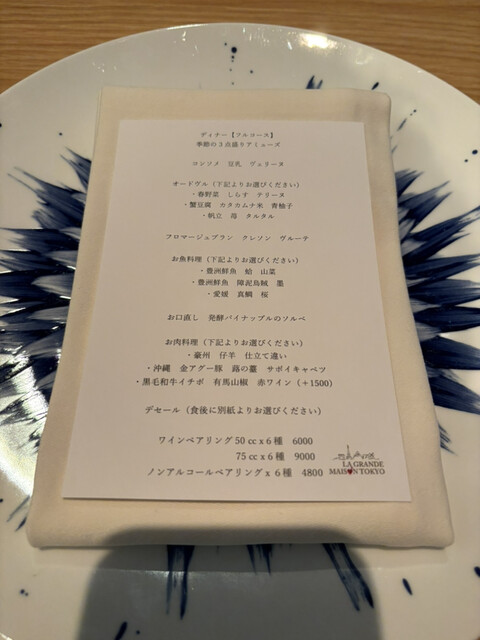 ディナー【フルコース】
季節の3点盛りアミューズ
コンソメ 豆乳 ヴェリーヌ
オードヴル（下記よりお選びください）
・春野菜 しらす テリーヌ
・蟹豆腐 カタカムナ米 青柚子
・帆立 苺 タルタル
フロマージュブラン クレソン ヴルーテ
お魚料理（下記よりお選びください）
・豊洲鮮魚 蛤 山菜
・豊洲鮮魚 障泥烏賊 墨
・愛媛 真鯛 桜
お口直し 発酵パイナップルのソルベ
お肉料理（下記よりお選びください）
・豪州 仔羊 仕立て違い
・沖縄 金アグー豚 蕗の薹 サボイキャベツ
・黒毛和牛イチボ 有馬山椒 赤ワイン（+1500）
デセール（食後に別紙よりお選びください）
ワインペアリング50 ccx6種 6000
75 ccx6種 9000
ノンアルコールペアリングx 6種 4800
LA GRANDE
MAISON TOKYO